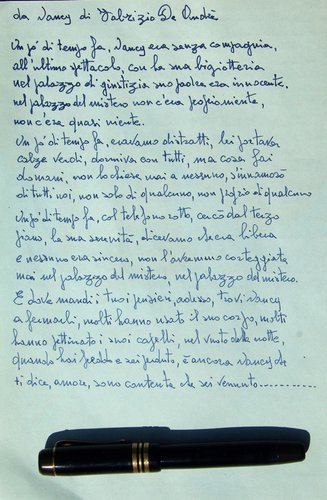 da Nancy di Fabrizio De André
Un po' di tempo fa, Nancy era senza compagnia,
all'ultimo spettacolo, con la sua bigiotteria
nel palazzo di giustizia suo padre era innocente,
nel palazzo del mistero non c'era propriamente,
non c'era quasi niente.
Un po' di tempo fa, eravamo distratti, lei portava
calze verdi, dormiva con tutti, ma cosa fai
domani, non lo chiese mai a nessuno, s'innamorò
di tutti noi, non solo di qualcuno, non proprio di qualcuno
Un po' di tempo fa, col telefono rotto, cercò dal terzo
piano, la sua serenità, dicevamo che era libera
e nessuno era sincero, non l'avremmo corteggiata
mai nel palazzo del mistero, nel palazzo del mistero.
E dove mandi i tuoi pensieri, adesso, trovi Nancy
a fermarli, molti hanno usato il suo corpo, molti
hanno pettinato i suoi capelli, nel vuoto della notte,
quando hai freddo e sei perduto, è ancora Nancy che
ti dice, amore, sono contenta che sei venuto............